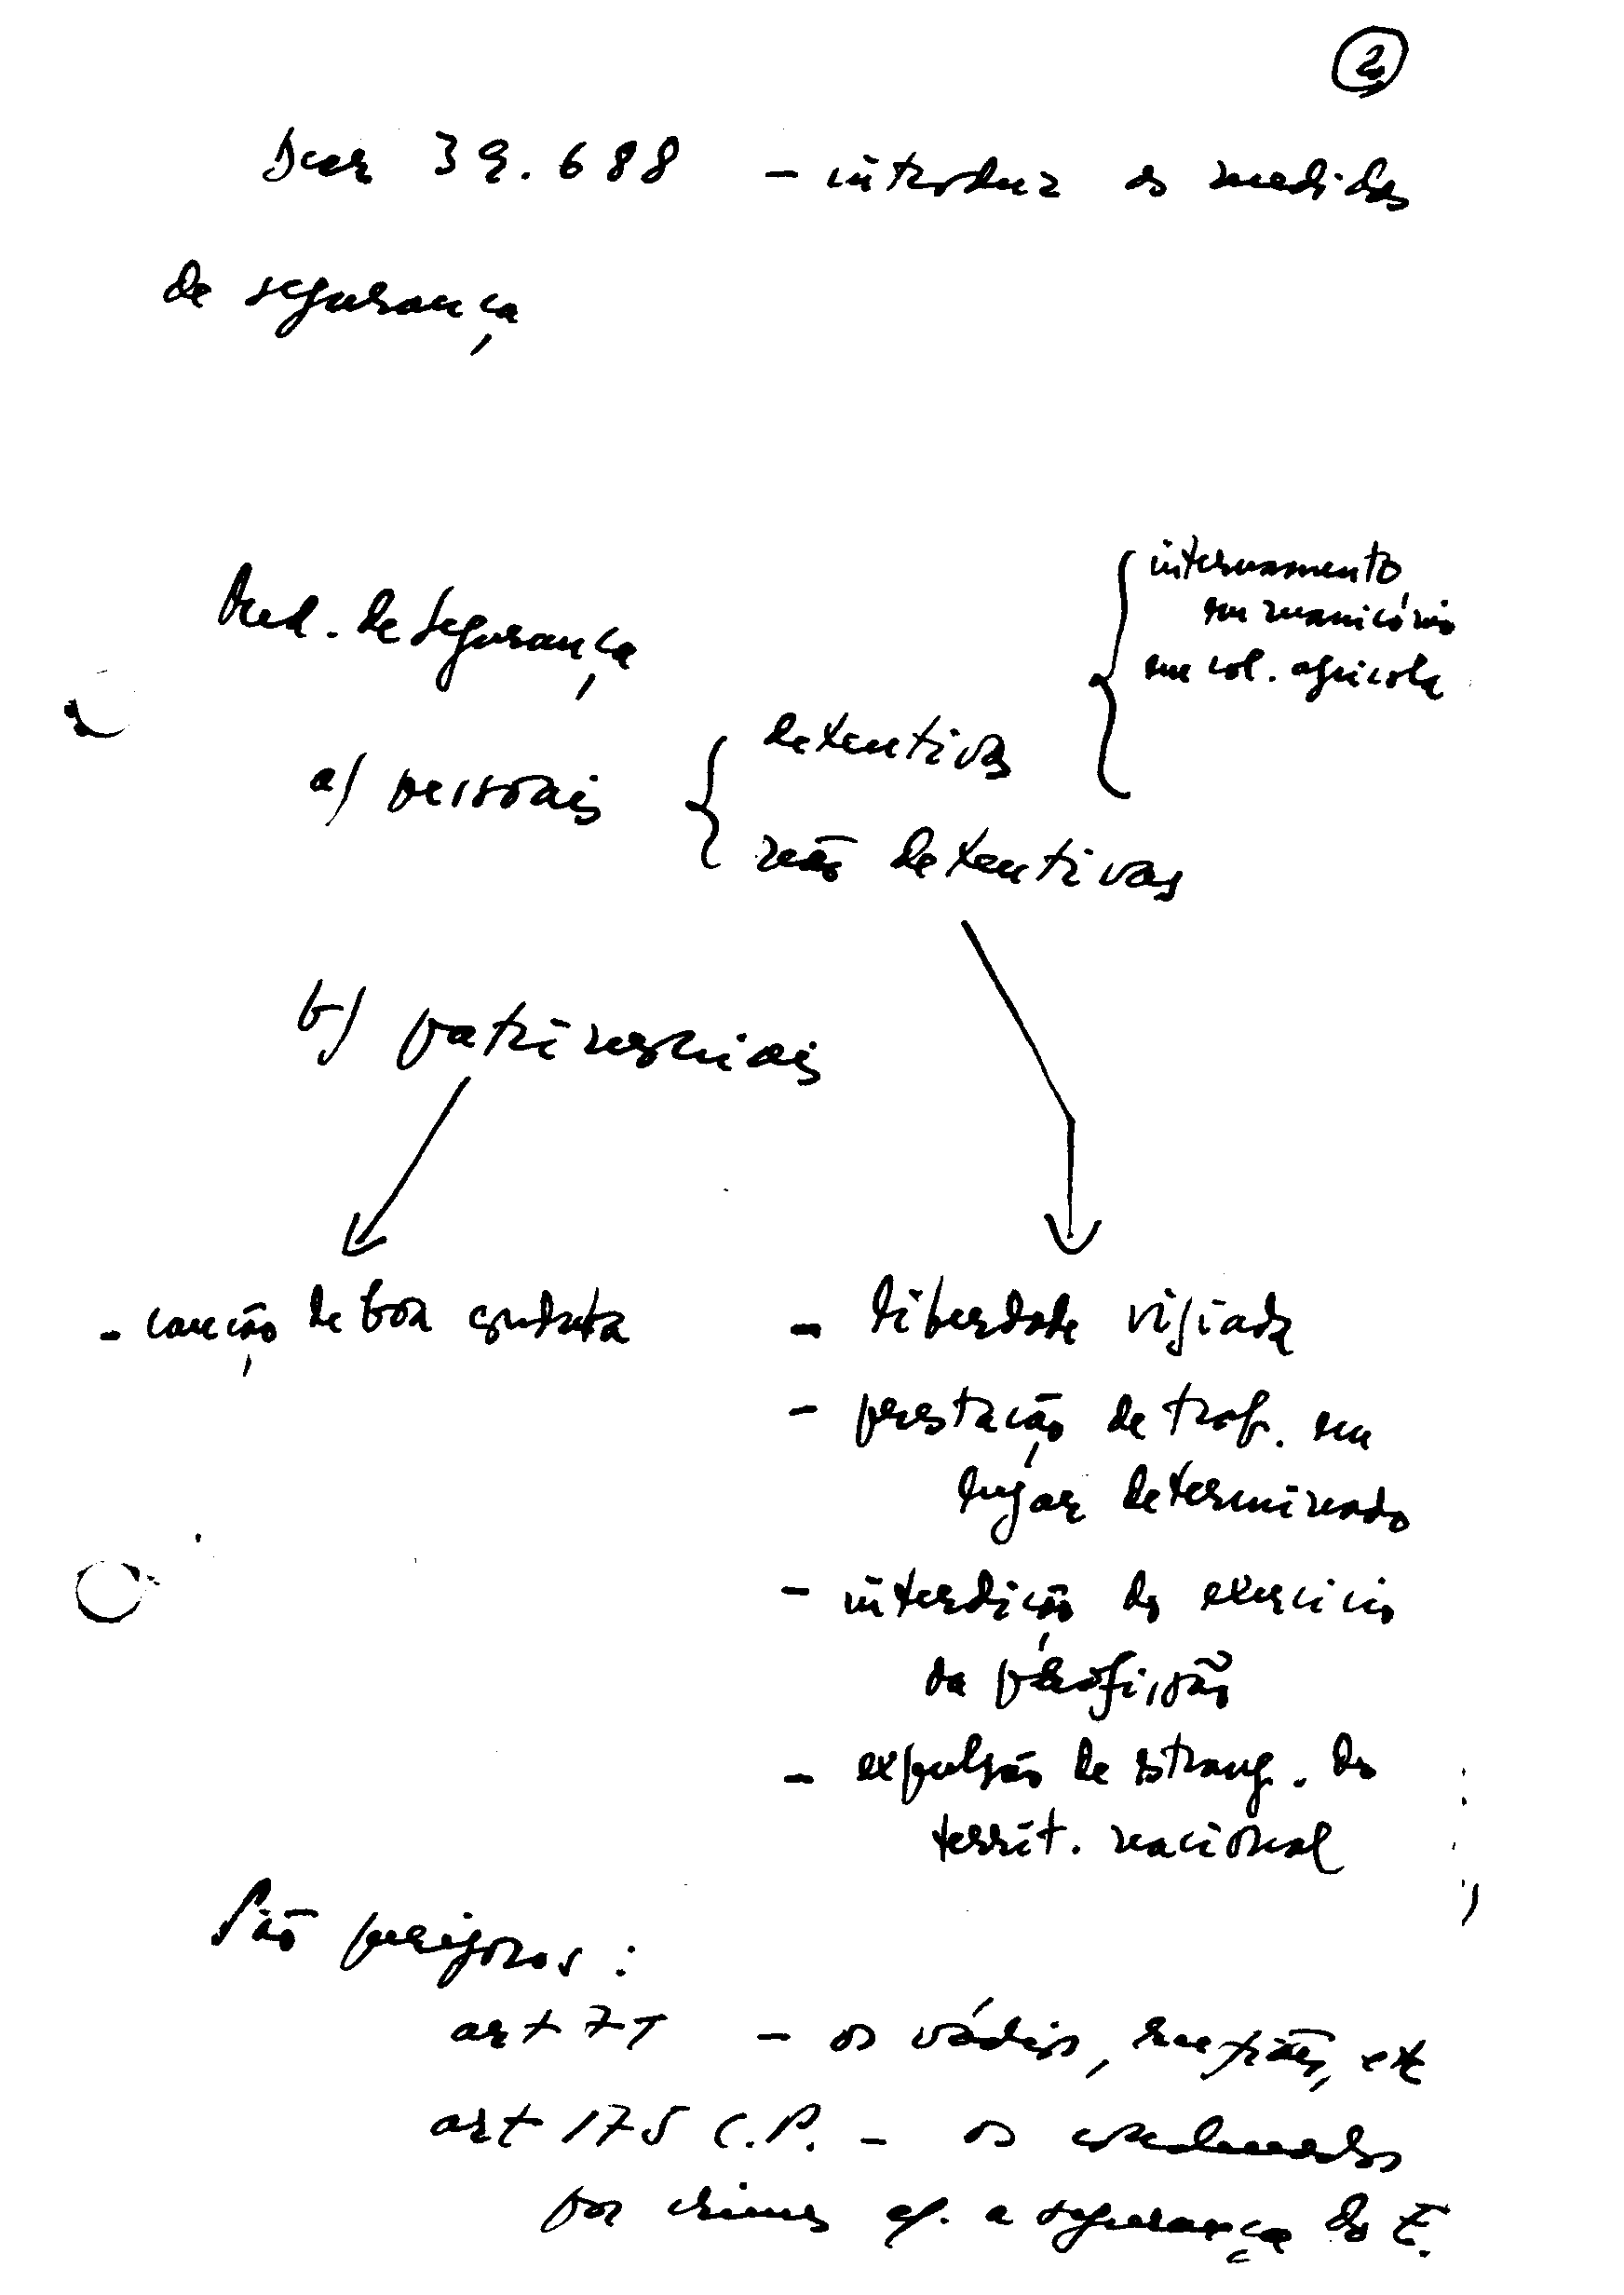 2
Decr 39.688 – introduz as medidas
de segurança
Med. de Segurança
internamento
em manicómio
em col. agrícola
a) pessoais
detentivas
não detentivas
b) patrimoniais
- caução de boa conduta
- liberdade vigiada
- prestação de trab. em
lugar determinado
- interdição do exercício
da profissão
- expulsão de estrang. do
territ. nacional
São perigosos:
art 71 – os vádios, rufiães, etc
art 175 C.P. – os condenados
por crimes c/. a segurança do E.